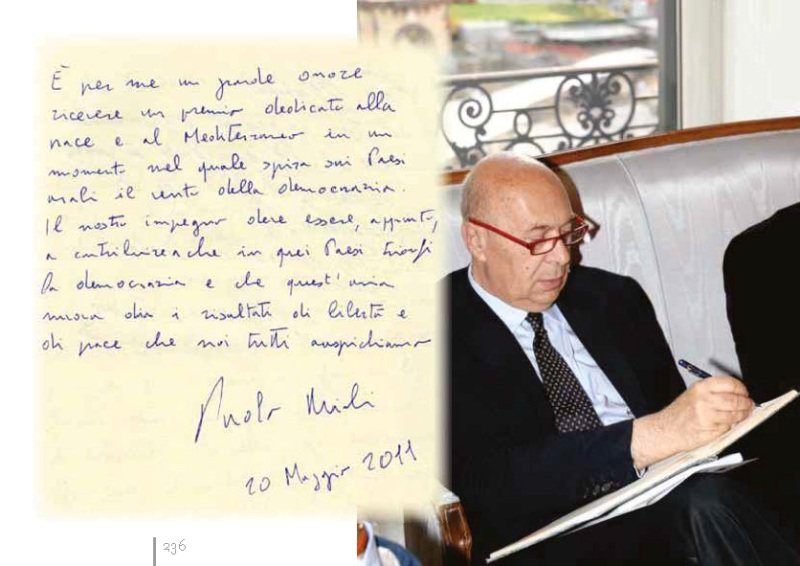 È per me un grande onore
ricevere un premio dedicato alla
pace e al Mediterraneo in un
momento nel quale spira sui Paesi
arabi il vento della democrazia.
Il nostro impegno deve essere, appunto,
a contribuire a che in quei Paesi trionfi
la democrazia e che quest'aria
nuova dia i risultati di libertà e
di pace che noi tutti auspichiamo
Paolo Mieli
20 Maggio 2011
236